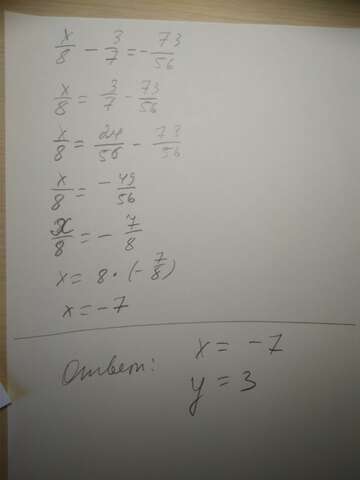 x/8 - 3/7 = - 73/56
x/8 = 3/7 - 73/56
x/8 = 24/56 - 73/56
x/8 = - 49/56
x/8 = - 7/8
x = 8 · (- 7/8)
x = -7
Ответ: x = -7
y = 3